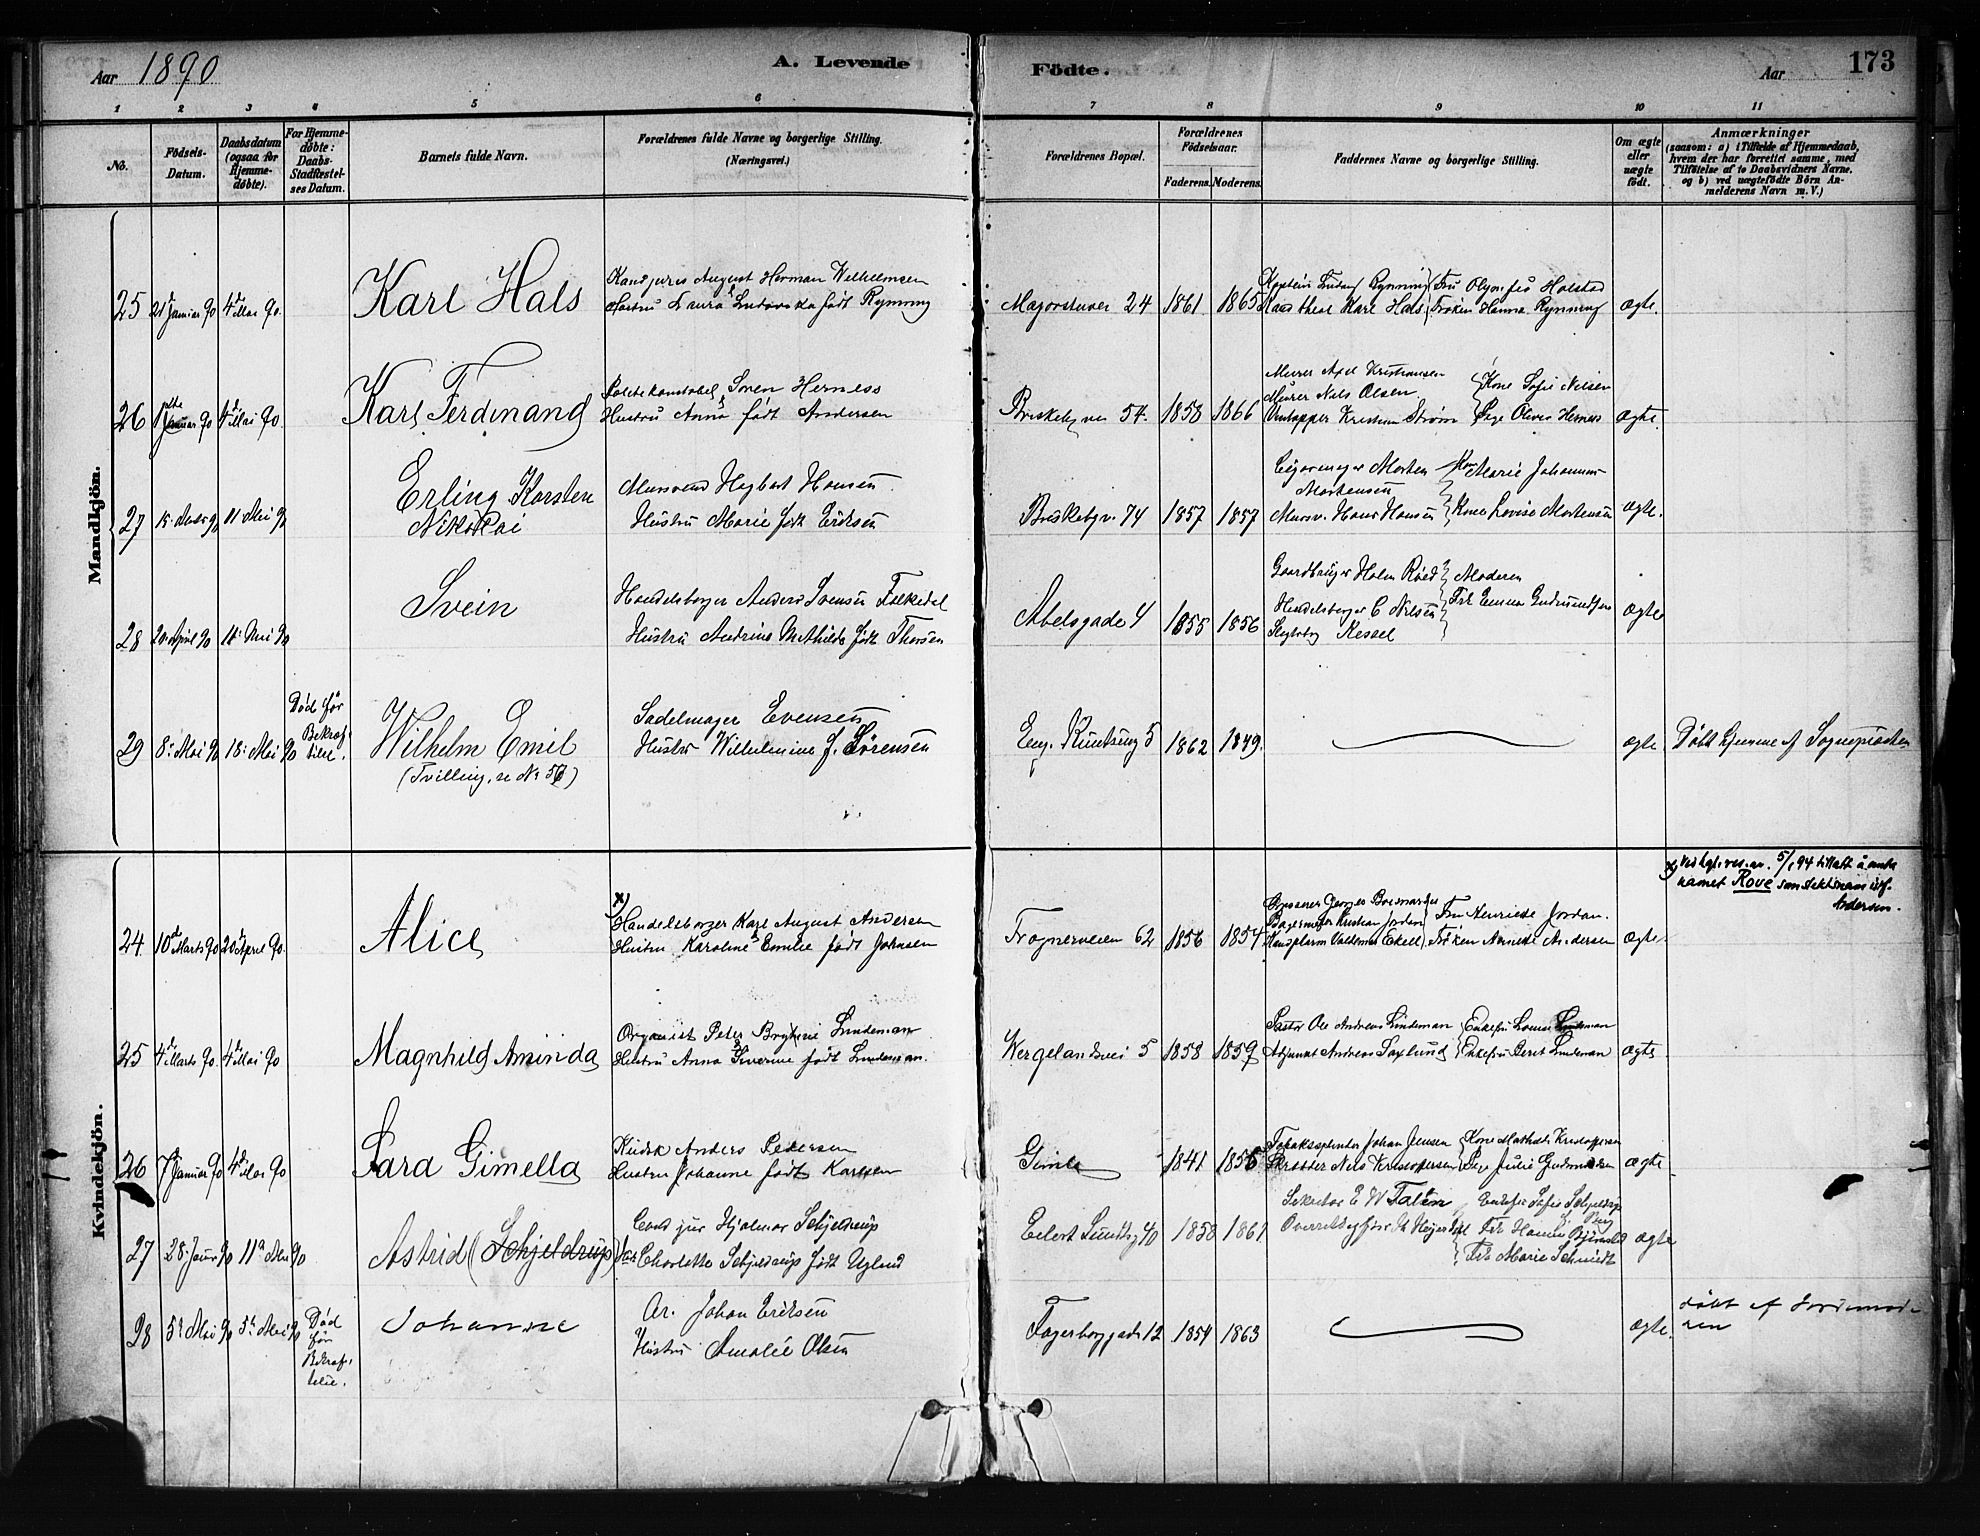 Aar 1890
A. Levende
Födte.
Aar
173
1 2 3 4 5 6 7 8 9 10 11
No.
Födsels-
Datum.
Daabsdatum
(ogsaa for
Hjemme-
döbte).
For Hjemme-
döbte:
Daabs-
Stadfæstel-
ses Datum.
Barnets fulde Navn.
Forældrenes fulde Navne og borgerlige Stilling.
(Næringsvei.)
Forældrenes Bopæl.
Forældrenes
Födselsaar.
Faderens. Moderens.
Faddernes Navne og borgerlige Stilling.
Om ægte
eller
uægte
födt.
Anmærkninger
(saasom: a) i Tilfælde af Hjemmedaab,
hvem der har forrettet samme, med
Tilföielse af to Daabsvidners Navne,
og b) ved uægtefödte Börn An-
melderens Navn m. V.)
Mandkjön.
25 21 Januar 90 4 Mai 90.
Karl Hals
Kand juris August Herman Wilhelmsen
Hustru Laura Ludovika født Rynning
Majorstuvei 24 1861 1865
Kaptein Ludvig Rynning Fru Holstad
Kand theol Karl Hals Frøken Hanna Rynning
ægte.
26 Januar 90 4 Mai 90.
Karl Ferdinand
Politikonstabel Søren Herness
Hustru Anna født Andersen
Briskeby vei 54. 1858 1866
Murer Axel Kristiansen
Murer Nils Olsen Kone Sofie Nilsen
Vintapper Kristian Strøm Pige Herness
ægte.
27 90 11 Mai 90
Erling Karsten
Nikolai
Mursvend Hagbart Hansen
Hustru Marie født Eriksen
Briskebyv. 74 1857 1857
Cigarmager Morten Kone Marie Johannes
Mortensen
Mursv. Hans Hansen Kone Lovise Mortensen
ægte.
28 20 April 90 11 Mai 90
Svein
Handelsborger Anders Svensen Folkedal
Hustru Andrine Mathilde født Thorsen
Abelsgade 4 1855 1856
Gaardbruger Holm Røed Moderen
Handelsborger C Nilsen Frk Emma Gudmundsen
Kessel
ægte
29 8 Mai 90 18 Mai 90
Død før
Bekræf-
telse.
Wilhelm Emil
(Tvilling, se No 56)
Sadelmager Evensen
Hustr Wilhelmine f. Sørensen
Eug. 5 1862 1849.
ægte
Døbt hjemme af Sognepræsten
Kvindekjön.
24 10 Marts 90 20 April 90.
Alice
x)
Handelsborger Karl August Andersen
Hustru Karoline Emilie født Johnsen
Frognerveien 62 1856 1854
Bagermester Kristian Jordan Fru Henriette Jordan.
Kandpharm Valdemar Eckell Frøken Andersen
ægte.
x) Ved kgl. res. av 5/1 94 tillatt å anta
namet Rove som slektsnavn istf.
Andersen.
25 4 Marts 90. 4 Mai 90
Magnhild Aminda
Organist Peter Brynie Lindeman
Hustru Anna Severine født Lindeman.
Wergelandsvei 5 1858 1859
Pastor Ole Andreas Lindeman Enkefru Louise Lindeman
Adjunkt Andreas Saxlund Enkefru Berit Lindeman
ægte
26 7 Januar 90 4 Mai 90
Sara Gimella
Kudsk Anders Pedersen
Hustru Johanne født Karlsen
Gimle 1841 1855
Johan Jensen Kone Mathilde Kristoffersen
Skrædder Nils Kristoffersen Pige Julie Gudmundsen
ægte
27 28 Januar 90 11 Mai 90
Astrid (Schjeldrup)
Cand jur Hjalmar Schjeldrup
Charlotte Schjeldrup født Ugland
Eilert Sundtsg 40 1858 1861
Sekretær E W Enkefru Sofie Schjeldrup
Overretssagfører Th Heyerdahl Frk Hanna
Frk Marie Schmidt
ægte
28 5 Mai 90 5 Mai 90
Død
før
Bekræf-
telse.
Johanne
Ar. Johan Eriksen
Hustru Amalie Olsen
Fagerborggade 12 1854 1863
ægte.
døbt af Jordemode-
ren